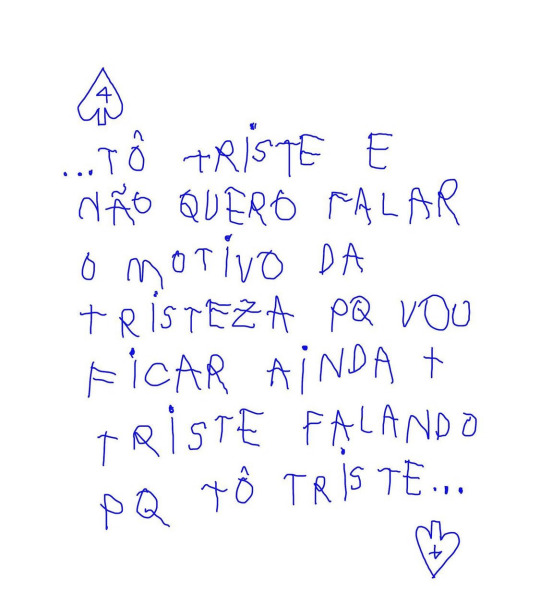 4
...TÔ TRISTE E
NÃO QUERO FALAR
O MOTIVO DA
TRISTEZA PQ VOU
FICAR AINDA +
TRISTE FALANDO
PQ TÔ TRISTE...
4